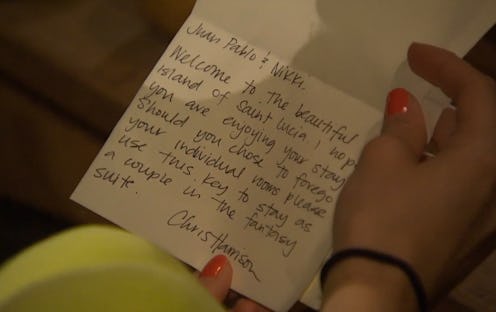 Juan Pablo & Nikki.
Welcome to the beautiful
island of Saint Lucia. I hope
you are enjoying your stay
Should you chose to forego
your individual rooms please
use this key to stay as
a couple in the fantasy
suite.
Chris Harrison